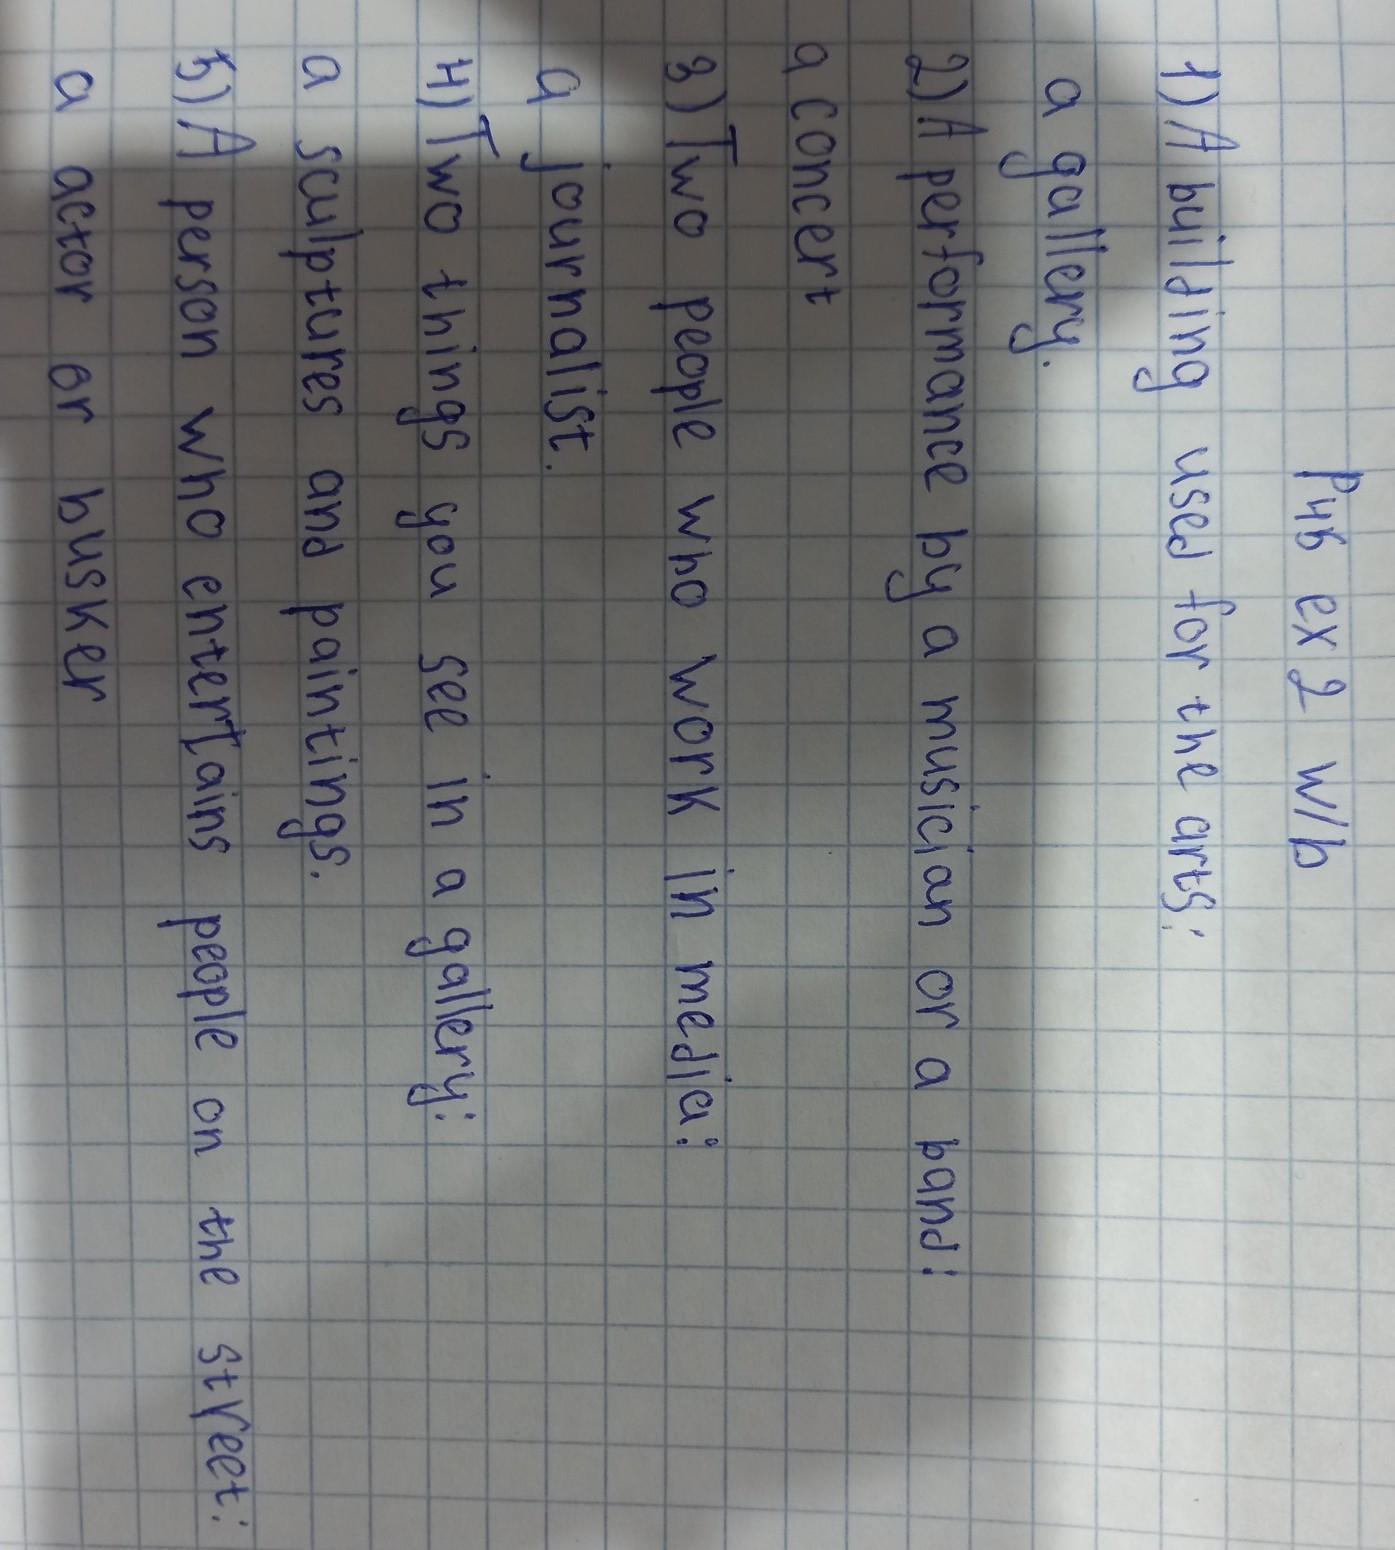 P46 ex 2 w/b
1) A building used for the arts:
a gallery.
2) A performance by a musician or a band:
a concert
3) Two people who work in media:
a journalist.
4) Two things you see in a gallery:
a sculptures and paintings.
5) A person who entertains people on the street:
a actor or busker